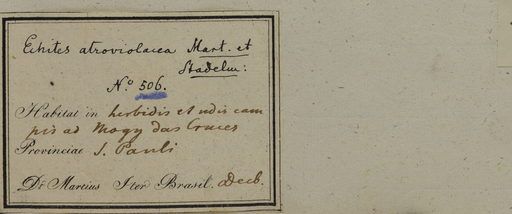 Echites atroviolacea Mart. et
Stadelm:
No. 506.
Habitat in herbidis et udis cam
pis ad Mogy das Cruces
Provinciae S. Pauli
Dr Martius Iter Brasil. Decb.